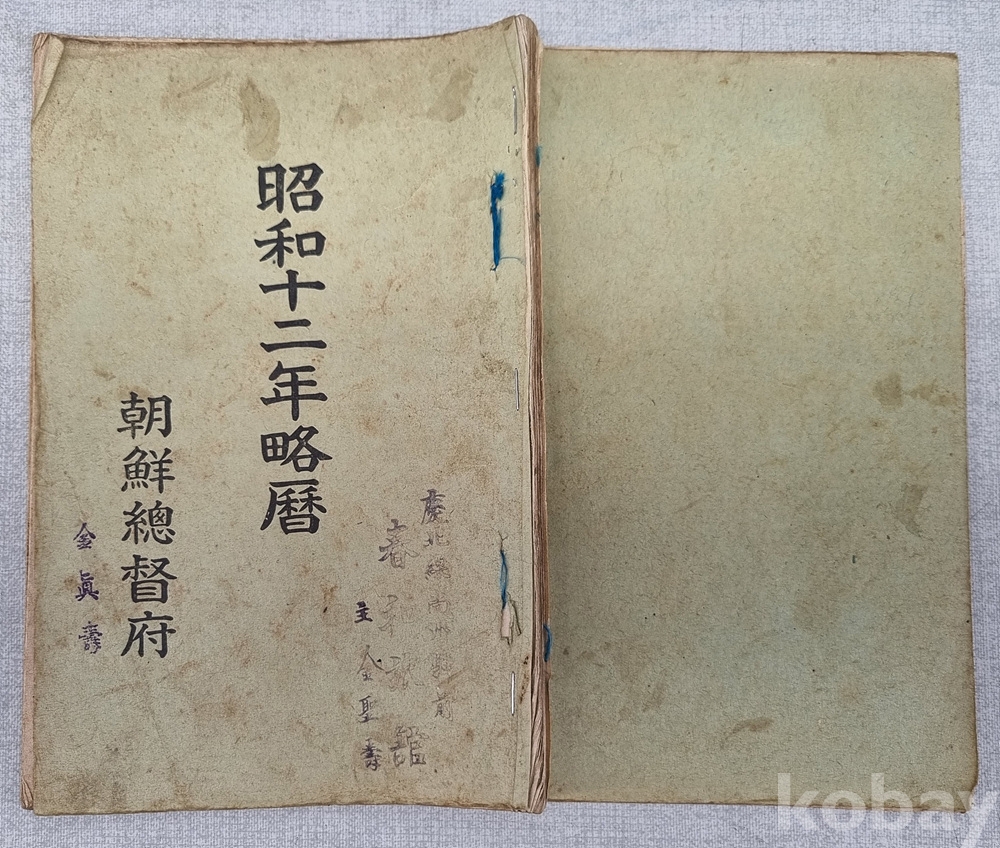 慶北線向州驛前
春
主 金聖壽
昭和十二年略曆
朝鮮總督府
金眞壽
kobay